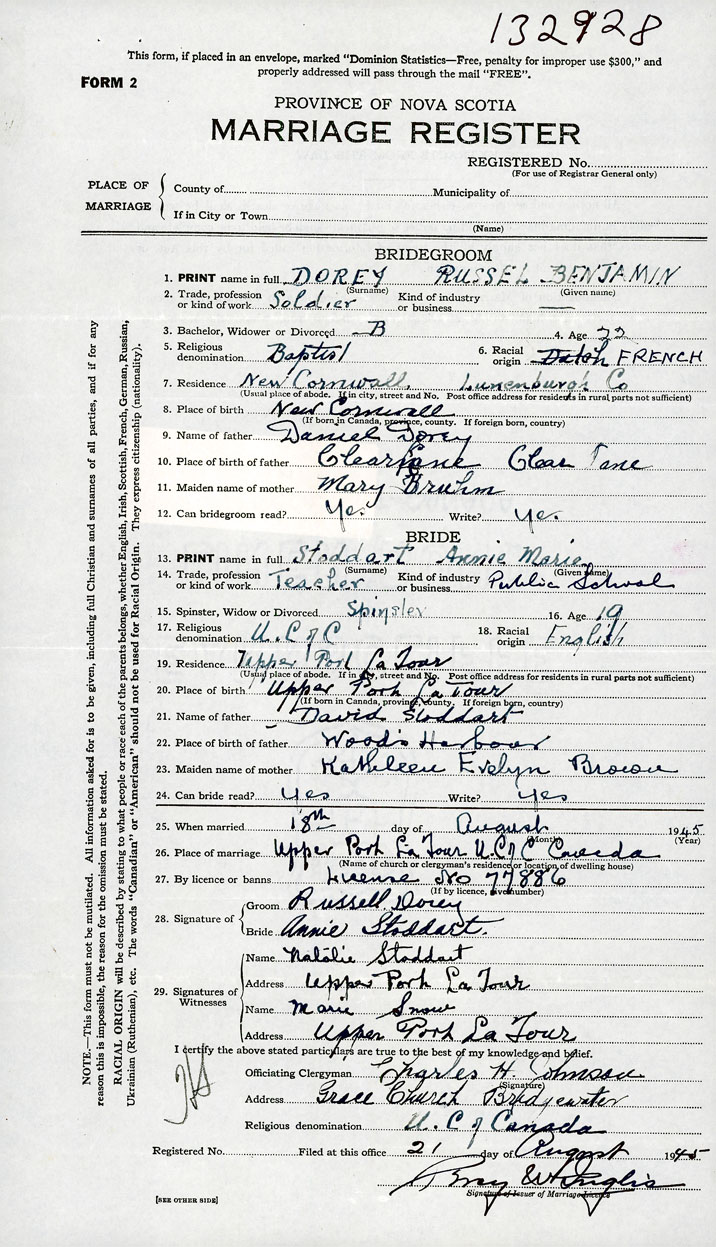 132928
This form, if placed in an envelope, marked "Dominion Statistics—Free, penalty for improper use $300," and
properly addressed will pass through the mail "FREE".
FORM 2
PROVINCE OF NOVA SCOTIA
MARRIAGE REGISTER
REGISTERED No.
(For use of Registrar General only)
PLACE OF MARRIAGE
County of Municipality of
If in City or Town
(Name)
BRIDEGROOM
1. PRINT name in full DOREY RUSSEL BENJAMIN
(Surname) (Given name)
2. Trade, profession or kind of work Soldier Kind of industry or business —
3. Bachelor, Widower or Divorced B 4. Age 22
5. Religious denomination Baptist 6. Racial origin Dutch FRENCH
7. Residence New Cornwall, Lunenburgh Co
(Usual place of abode. If in city, street and No. Post office address for residents in rural parts not sufficient)
8. Place of birth New Cornwall
(If born in Canada, province, county. If foreign born, country)
9. Name of father Daniel Dorey
10. Place of birth of father Clearlane Clear Lane
11. Maiden name of mother Mary Bruhm
12. Can bridegroom read? Yes Write? Yes
BRIDE
13. PRINT name in full Stoddart Annie Marie
(Surname) (Given name)
14. Trade, profession or kind of work Teacher Kind of industry or business Public School
15. Spinster, Widow or Divorced Spinster 16. Age 19
17. Religious denomination U. C of C 18. Racial origin English
19. Residence Upper Port La Tour
(Usual place of abode. If in city, street and No. Post office address for residents in rural parts not sufficient)
20. Place of birth Upper Port La Tour
(If born in Canada, province, county. If foreign born, country)
21. Name of father David Stoddart
22. Place of birth of father Woods Harbour
23. Maiden name of mother Kathleen Evelyn Brown
24. Can bride read? Yes Write? Yes
25. When married 18th day of August 1945
(Month) (Year)
26. Place of marriage Upper Port La Tour U.C of Canada
(Name of church or clergyman's residence or location of dwelling house)
27. By licence or banns License No 77886
(If by licence, give number)
28. Signature of
Groom Russell Dorey
Bride Annie Stoddart.
29. Signatures of Witnesses
Name Natalie Stoddart
Address Upper Port La Tour
Name Marie Snow
Address Upper Port La Tour
I certify the above stated particulars are true to the best of my knowledge and belief.
Officiating Clergyman Charles H. Johnson
(Signature)
Address Grace Church Bridgewater
Religious denomination U. C of Canada
Registered No. Filed at this office 21 day of August 1945
Signature of Issuer of Marriage Licence
[SEE OTHER SIDE]
NOTE.—This form must not be mutilated. All information asked for is to be given, including full Christian and surnames of all parties, and if for any
reason this is impossible, the reason for the omission must be stated.
RACIAL ORIGIN will be described by stating to what people or race each of the parents belongs, whether English, Irish, Scottish, French, German, Russian,
Ukrainian (Ruthenian), etc. The words "Canadian" or "American" should not be used for Racial Origin. They express citizenship (nationality).